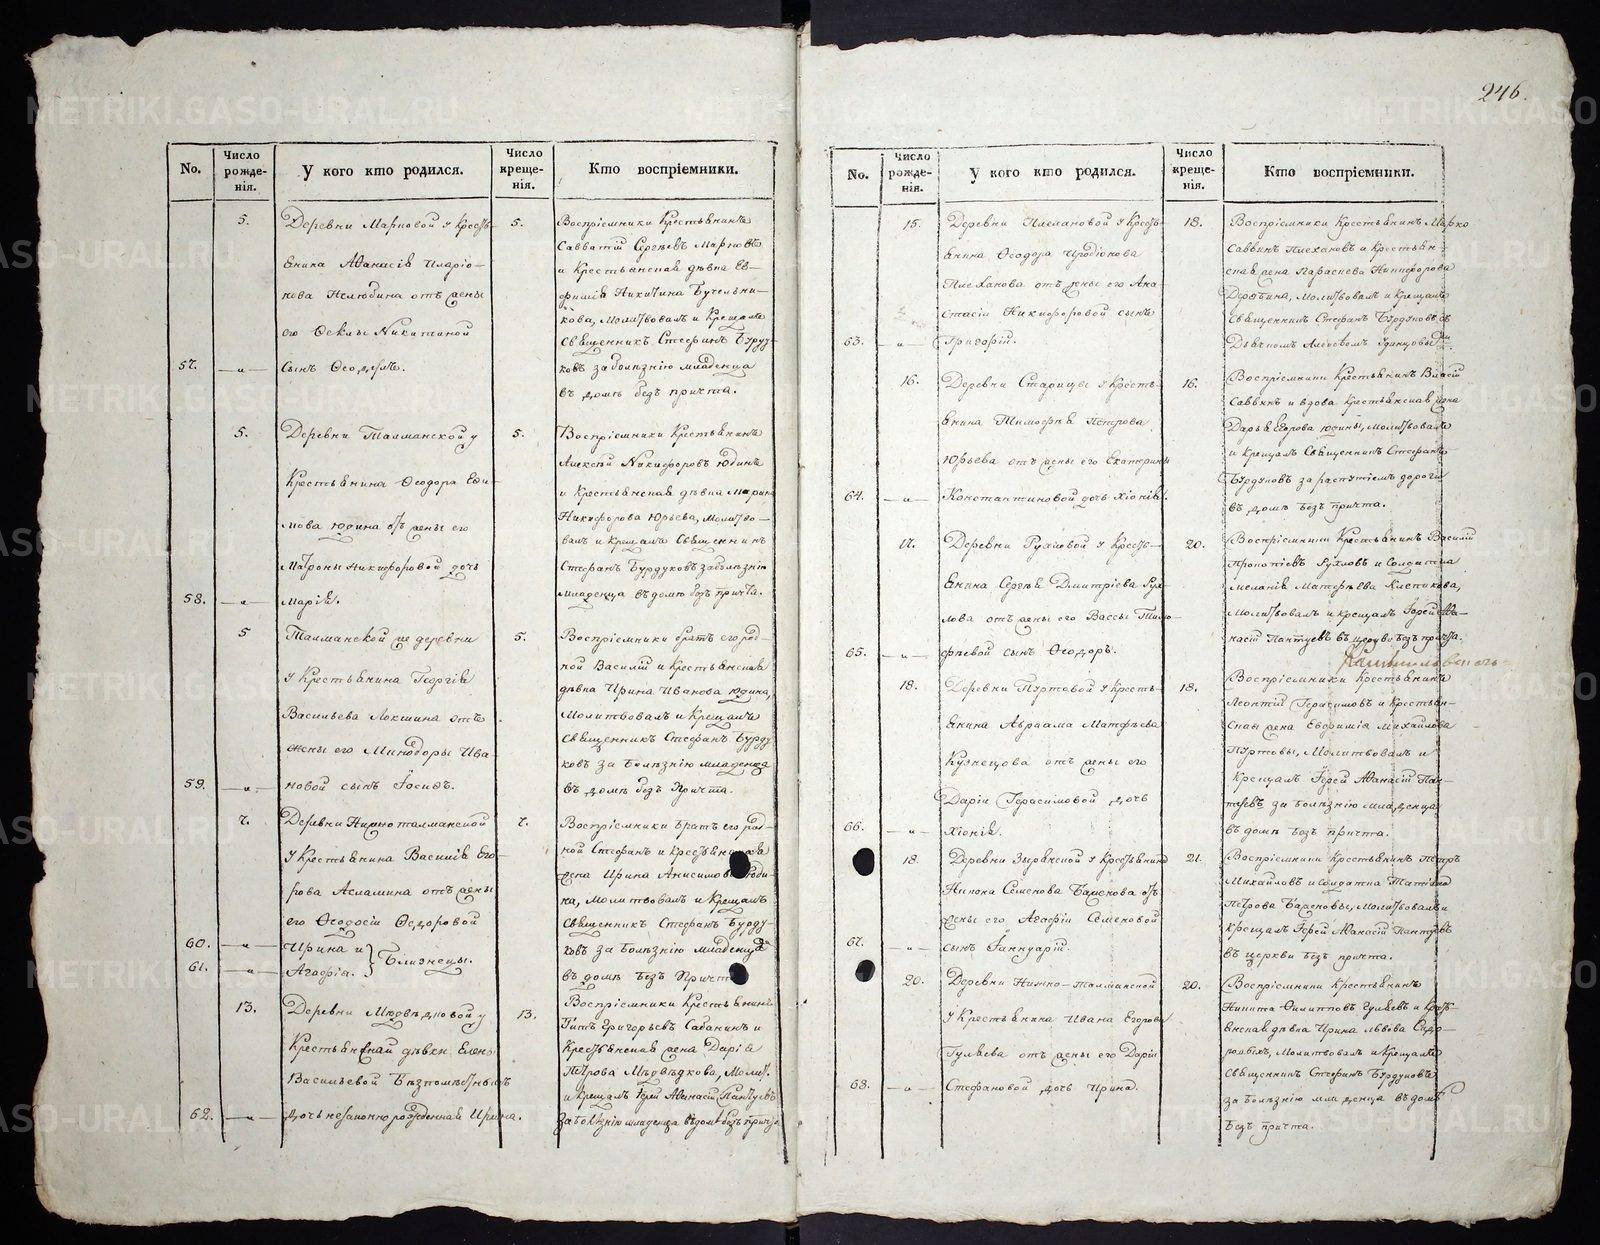 246.
No.
Число рожденія.
У кого кто родился.
Число крещенія.
Кто воспріемники.
5.
Деревни Марковой у Кресть-
янина Аѳанасія Иларіо-
нова Нелюбина отъ жены
его Ѳеклы Никитиной
57. —„—
сынъ Ѳеодоръ.
5.
Воспріемники Крестьянинъ
Савватій Сергѣевъ Марковъ
и Крестьянская дѣвка Ев-
фимія Никитина Бучельни-
кова, Молитвовалъ и Крещалъ
Священникъ Стефанъ Бурду-
ковъ за болѣзнію младенца
въ домѣ безъ причта.
5.
Деревни Талманской у
Крестьянина Ѳеодора Еки-
мова Юдина отъ жены его
Матроны Никифоровой дочь
58. —„—
Марія.
5.
Воспріемники Крестьянинъ
Алексѣй Никифоровъ Юдинъ
и Крестьянская дѣвка Марина
Никифорова Юрьева, Молитво-
валъ и Крещалъ Священникъ
Стефанъ Бурдуковъ за болѣзнію
младенца въ домѣ безъ причта.
5
Талманской же деревни
у Крестьянина Георгія
Васильева Локшина отъ
жены его Минодоры Ива-
59. —„—
новой сынъ Іосифъ.
5.
Воспріемники братъ его род-
ной Василій и Крестьянская
дѣвка Ирина Иванова Юдина,
Молитвовалъ и Крещалъ
Священникъ Стефанъ Бурду-
ковъ за болѣзнію младенца
въ домѣ безъ Причта.
7.
Деревни Нижноталманской
у Крестьянина Василія Его-
рова Асламина отъ жены
его Ѳеодосіи Ѳедоровой
60. —„—
Ирина и
61. —„—
Агафія. } Близнецы.
7.
Воспріемники Братъ его род-
ной Стефанъ и Крестьянская
жена Ирина Анисимова Юди-
на, Молитвовалъ и Крещалъ
Священникъ Стефанъ Бурду-
ковъ за Болѣзнію младенца
въ домѣ Безъ Причта
13.
Деревни Медвѣдковой у
Крестьянской дѣвки Елены
Васильевой
62. —„—
дочь незаконнорожденная Ирина.
13.
Воспріемники Крестьянинъ
Титъ Григорьевъ Сабанинъ и
Крестьянская жена Дарія
Петрова Медвѣдкова, Молит.
и Крещалъ Іерей Аѳанасій Пантуевъ
за болѣзнію младенца въ домѣ безъ причта.
No.
Число рожденія.
У кого кто родился.
Число крещенія.
Кто воспріемники.
15.
Деревни Плехановой у Кресть-
янина Ѳеодора Иродіонова
Плеханова отъ жены его Ана-
стасіи Никифоровой сынъ
63. —„—
Григорій.
18.
Воспріемники Крестьянинъ Марко
Саввинъ Плехановъ и Крестьян-
ская жена Параскева Никифорова
Молитвовалъ и Крещалъ
Священникъ Стефанъ Бурдуковъ съ
Дьячкомъ Алексѣемъ Удинцовымъ.
16.
Деревни Старицы у Кресть-
янина Тимофѣя Петрова
Юрьева отъ жены его Екатерины
64. —„—
Константиновой дочь Хіонія.
16.
Воспріемники Крестьянинъ Власій
Саввинъ и вдова Крестьянская жена
Дарья Егорова Юдины, Молитвовалъ
и Крещалъ Священникъ Стефанъ
Бурдуковъ за распутіемъ дороги
въ домѣ Безъ причта.
17.
Деревни Рухловой у Кресть-
янина Сергѣя Дмитріева Рух-
лова отъ жены его Вассы Тимо-
65. —„—
фѣевой сынъ Ѳеодоръ.
20.
Воспріемники Крестьянинъ Василій
Прокопіевъ Рухловъ и Солдатка
Меланія Матфѣева Клепикова,
Молитвовалъ и Крещалъ Іерей Аѳа-
насій Пантуевъ въ церкви безъ причта.
18.
Деревни Пуртовой у Кресть-
янина Авраама Матфѣева
Кузнецова отъ жены его
Даріи Герасимовой дочь
66. —„—
Хіонія.
18.
Воспріемники Крестьянинъ
Леонтій Герасимовъ и Крестьян-
ская жена Евфимія Михайлова
Пуртовы, Молитвовалъ и
Крещалъ Іерей Аѳанасій Пан-
туевъ за болѣзнію младенца
въ домѣ Безъ причта.
18.
Деревни Зырянской у Крестьянина
Никона Семенова Баженова отъ
жены его Агафіи Семеновой
67. —„—
сынъ Іаннуарій.
21.
Воспріемники Крестьянинъ Петръ
Михайловъ и Солдатка Татіана
Петрова Баженовы, Молитвовалъ и
Крещалъ Іерей Аѳанасій Пантуевъ
въ церкви безъ причта.
20.
Деревни Нижно-талманской
у Крестьянина Ивана Егорова
Гуляева отъ жены его Даріи
68. —„—
Стефановой дочь Ирина.
20.
Воспріемники Крестьянинъ
Никита Филипповъ Гуляевъ и Кресть-
янская дѣвка Ирина Львова
Молитвовалъ и Крещалъ
Священникъ Стефанъ Бурдуковъ
за Болѣзнію младенца въ домѣ
Безъ причта.
METRIKI.GASO-URAL.RU